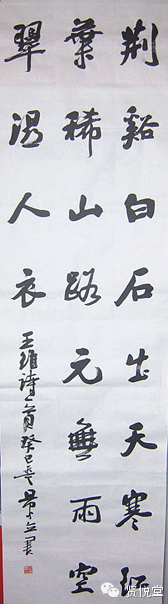 荆谿白石出天寒红
葉稀山路元無雨空
翠湿人衣 王维诗一首癸巳
贤悦堂